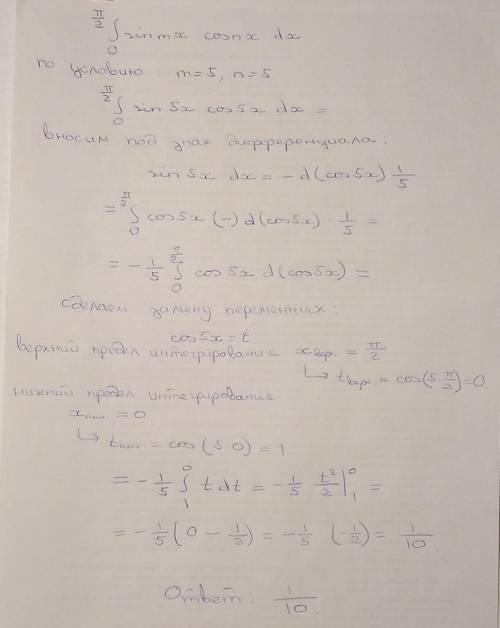 ∫₀^{π/2} sin mx cos nx dx
по условию: m=5, n=5
∫₀^{π/2} sin 5x cos 5x dx =
вносим под знак дифференциала:
sin 5x dx = -d(cos 5x) 1/5
= ∫₀^{π/2} cos 5x (-) d(cos 5x) · 1/5 =
= - 1/5 ∫₀^{π/2} cos 5x d(cos 5x) =
сделаем замену переменных:
cos 5x = t
верхний предел интегрирования x верх. = π/2
↳ t верх. = cos(5·π/2) = 0.
нижний предел интегрирования
x ниж = 0
↳ t ниж = cos (5·0) = 1
= - 1/5 ∫₁⁰ t dt = - 1/5 t²/2 |₁⁰ =
= - 1/5 (0 - 1/2) = - 1/5 (-1/2) = 1/10.
Ответ: 1/10.